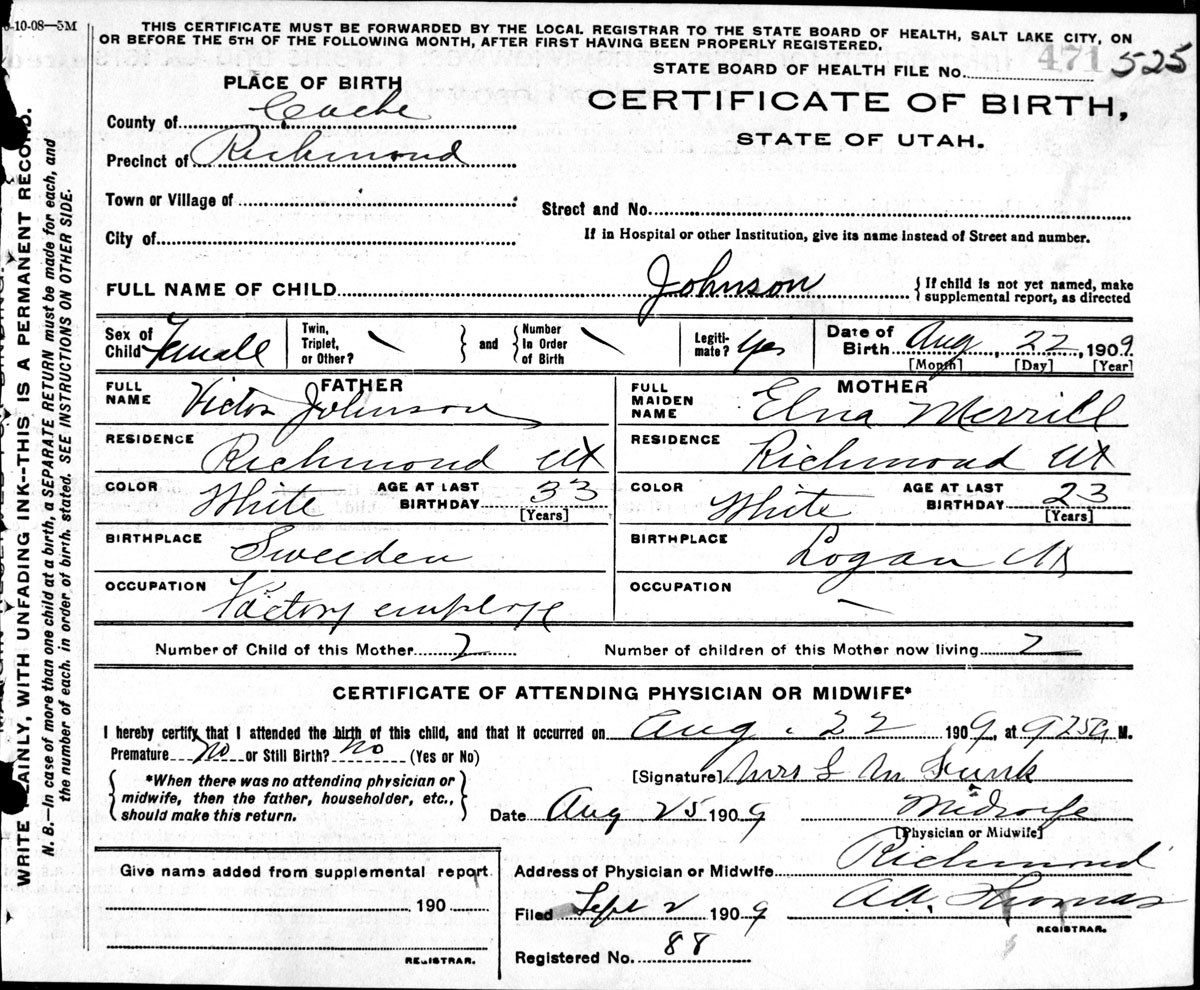 6-10-08—5M
THIS CERTIFICATE MUST BE FORWARDED BY THE LOCAL REGISTRAR TO THE STATE BOARD OF HEALTH, SALT LAKE CITY, ON
OR BEFORE THE 5TH OF THE FOLLOWING MONTH, AFTER FIRST HAVING BEEN PROPERLY REGISTERED.
STATE BOARD OF HEALTH FILE NO. 471 525
PLACE OF BIRTH
CERTIFICATE OF BIRTH,
STATE OF UTAH.
County of Cache
Precinct of Richmond
Town or Village of
Street and No.
City of
If in Hospital or other Institution, give its name instead of Street and number.
FULL NAME OF CHILD Johnson { If child is not yet named, make
supplemental report, as directed
Sex of Child Female
Twin, Triplet, or Other? \ } and { Number In Order of Birth \
Legiti-mate? yes
Date of Birth Aug, 22, 1909.
[Month] [Day] [Year]
FATHER
FULL NAME Victor Johnson
RESIDENCE Richmond Ut
COLOR White AGE AT LAST BIRTHDAY 33
[Years]
BIRTHPLACE Sweeden
OCCUPATION Factory employe
MOTHER
FULL MAIDEN NAME Elna Merrill
RESIDENCE Richmond Ut
COLOR White AGE AT LAST BIRTHDAY 23
[Years]
BIRTHPLACE Logan Ut
OCCUPATION —
Number of Child of this Mother 2 Number of children of this Mother now living 2
CERTIFICATE OF ATTENDING PHYSICIAN OR MIDWIFE*
I hereby certify that I attended the birth of this child, and that it occurred on Aug. 22 1909, at 925a M.
Premature no or Still Birth? no (Yes or No)
{ *When there was no attending physician or
midwife, then the father, householder, etc.,
should make this return. }
[Signature] Mrs L M Funk
Date Aug 25 1909 Midwife
[Physician or Midwife]
Address of Physician or Midwife Richmond
Filed Sept 2 1909 AA. Thomas
REGISTRAR.
Registered No. 88
Give name added from supplemental report.
190
REGISTRAR.
WRITE PLAINLY, WITH UNFADING INK--THIS IS A PERMANENT RECORD.
N. B.—In case of more than one child at a birth, a SEPARATE RETURN must be made for each, and
the number of each, in order of birth, stated. SEE INSTRUCTIONS ON OTHER SIDE.